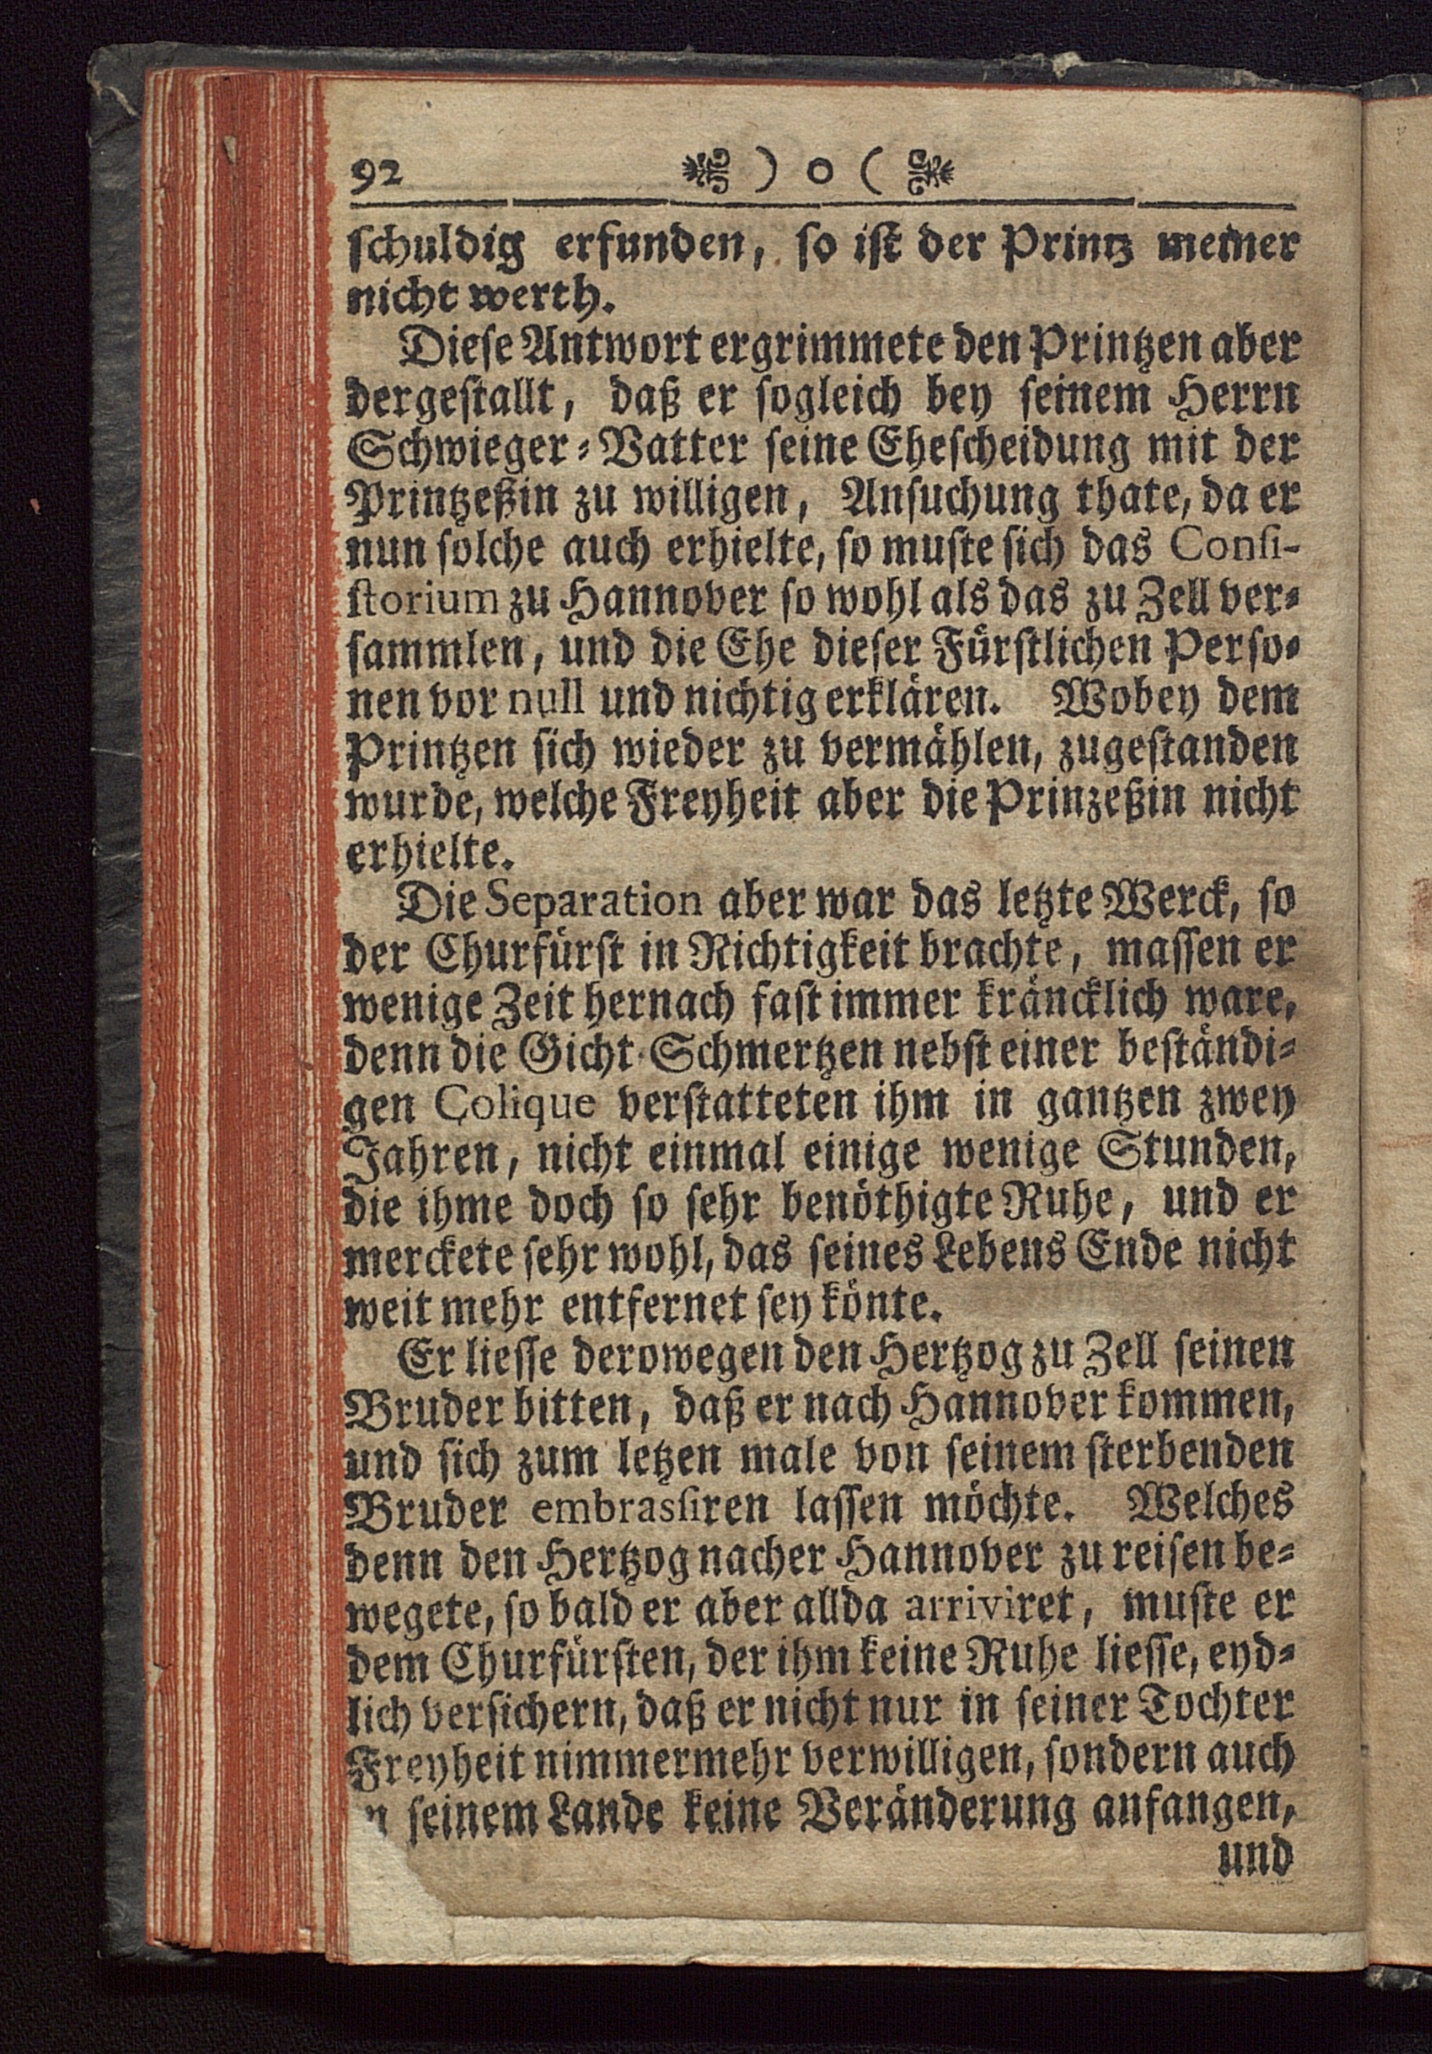 92 ) o (
schuldig erfunden, so ist der Printz meiner
nicht werth.
Diese Antwort ergrimmete den Printzen aber
dergestallt, daß er sogleich bey seinem Herrn
Schwieger-Vatter seine Ehescheidung mit der
Printzeßin zu willigen, Ansuchung thate, da er
nun solche auch erhielte, so muste sich das Consi-
storium zu Hannover so wohl als das zu Zell ver-
sammlen, und die Ehe dieser Fürstlichen Perso-
nen vor null und nichtig erklären. Wobey dem
Printzen sich wieder zu vermählen, zugestanden
wurde, welche Freyheit aber die Prinzeßin nicht
erhielte.
Die Separation aber war das letzte Werck, so
der Churfürst in Richtigkeit brachte, massen er
wenige Zeit hernach fast immer kräncklich ware,
denn die Gicht-Schmertzen nebst einer beständi-
gen Colique verstatteten ihm in gantzen zwey
Jahren, nicht einmal einige wenige Stunden,
die ihme doch so sehr benöthigte Ruhe, und er
merckete sehr wohl, das seines Lebens Ende nicht
weit mehr entfernet sey könte.
Er liesse derowegen den Hertzog zu Zell seinen
Bruder bitten, daß er nach Hannover kommen,
und sich zum letzen male von seinem sterbenden
Bruder embrassiren lassen möchte. Welches
denn den Hertzog nacher Hannover zu reisen be-
wegete, so bald er aber allda arriviret, muste er
dem Churfürsten, der ihm keine Ruhe liesse, eyd-
lich versichern, daß er nicht nur in seiner Tochter
Freyheit nimmermehr verwilligen, sondern auch
n seinem Lande keine Veränderung anfangen,
und